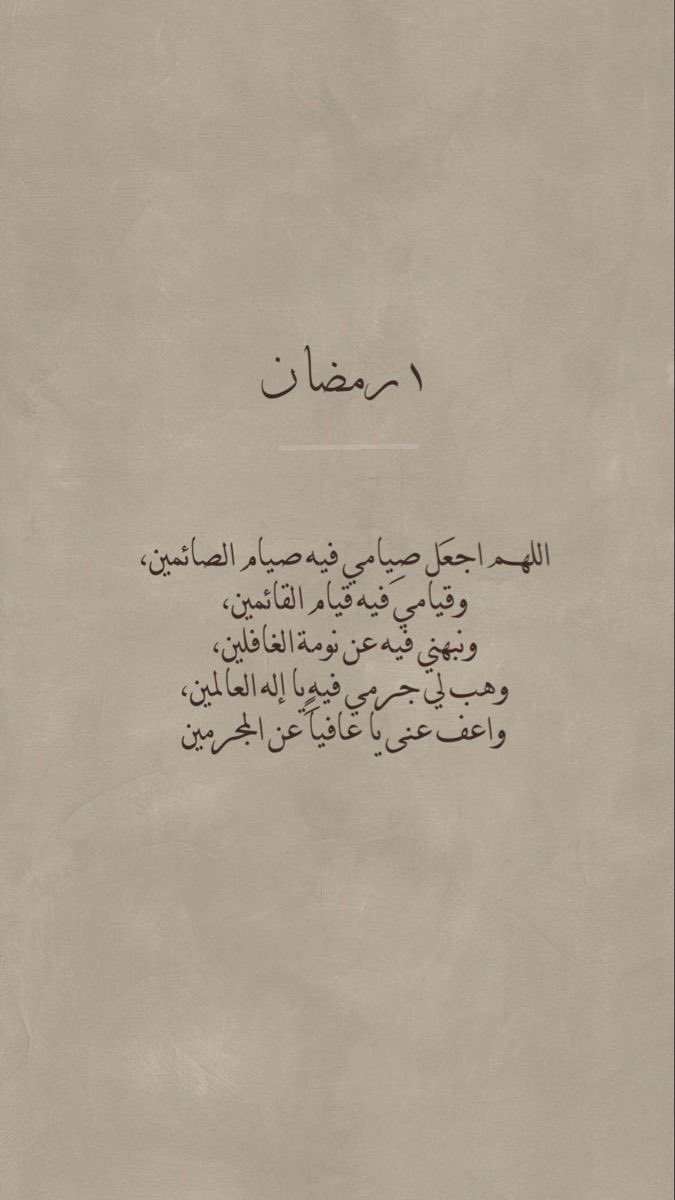 ١ رمضان
اللهم اجعَل صيامي فيه صيام الصائمين،
وقياميَ فيه قيام القائمين،
ونبهني فيه عن نومة الغافلين،
وهب لي جرمي فيهِ يا إله العالمين،
واعف عنى يا عافياً عن المجرمين